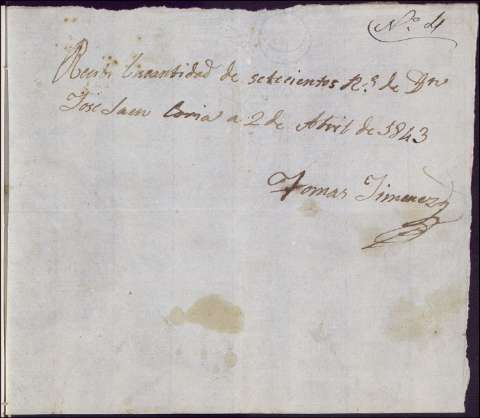 Nº 4
Recibi la cantidad de setecientos Rs. de Dn
Jose Saen Coria a 2 de Abril de 1843
Tomas Jimenez